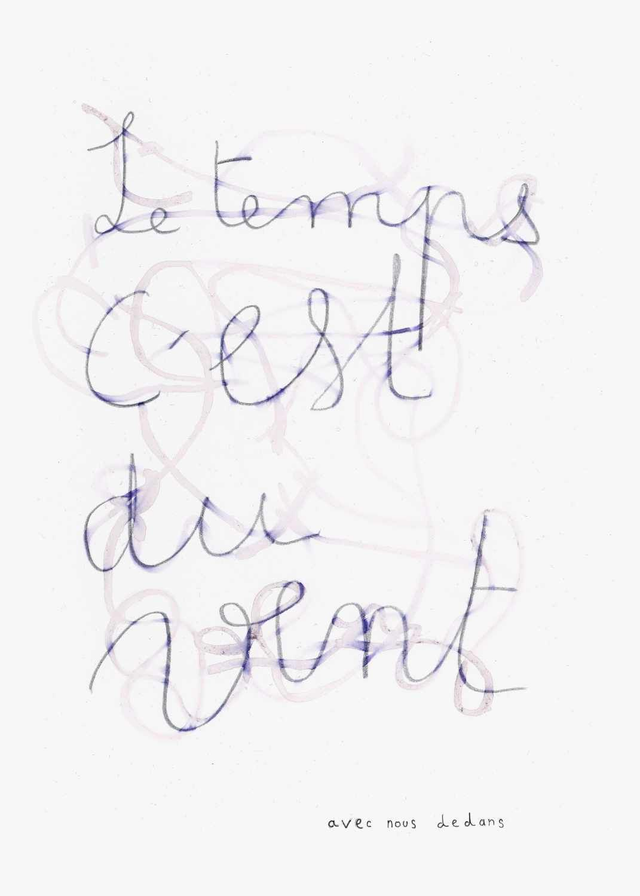 Le temps
c'est
du
vent
avec nous dedans